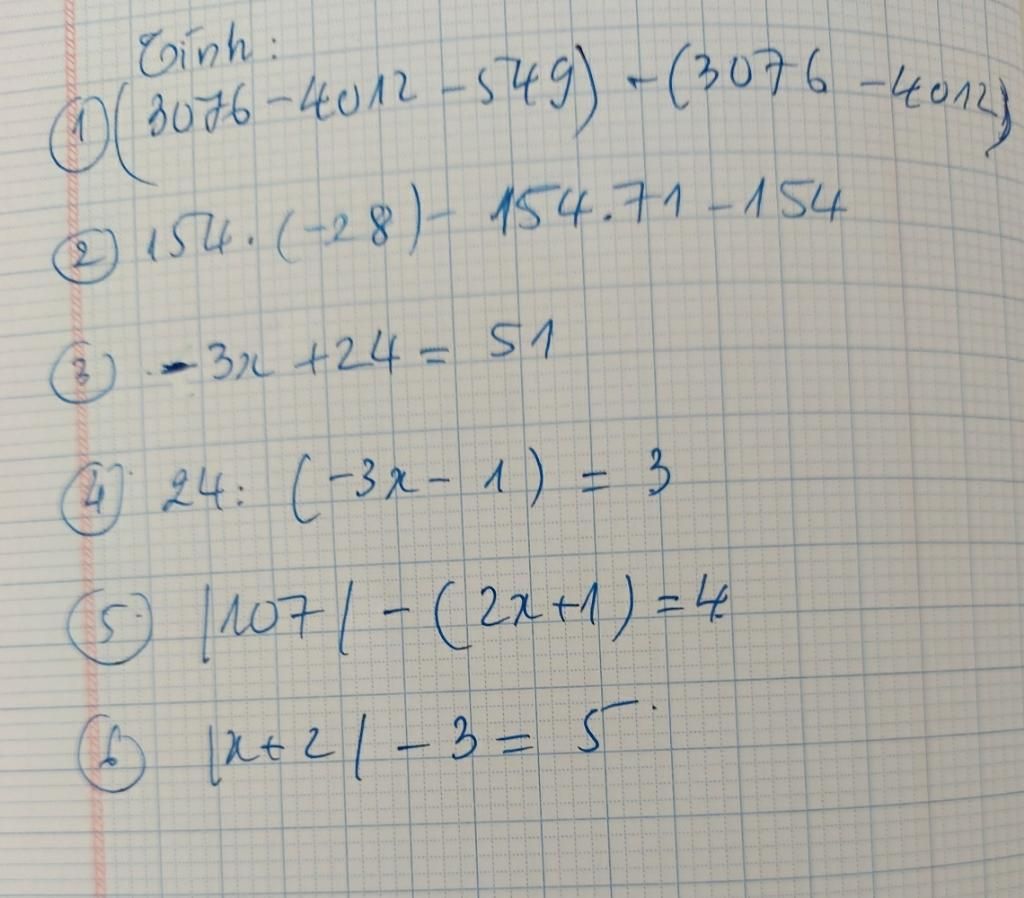 Tính:
① (3076 - 4012 - 549) - (3076 - 4012)
② 154. (-28) - 154.71 - 154
③ -3x + 24 = 51
④ 24: (-3x - 1) = 3
⑤ |107| - (2x+1) = 4
⑥ |x+2| - 3 = 5